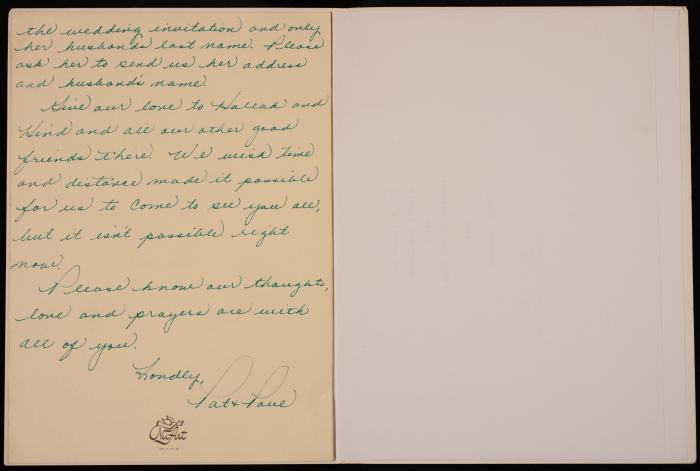 the wedding invitation and only
her husband's last name. Please
ask her to send us her address
and husband's name.
Give our love to Hallah and
Hind and all our other good
friends there. We wish time
and distance made it possible
for us to come to see you all,
but it isn't possible right
now.
Please know our thoughts,
love and prayers are with
all of you.
Fondly,
Pat &
NuArt